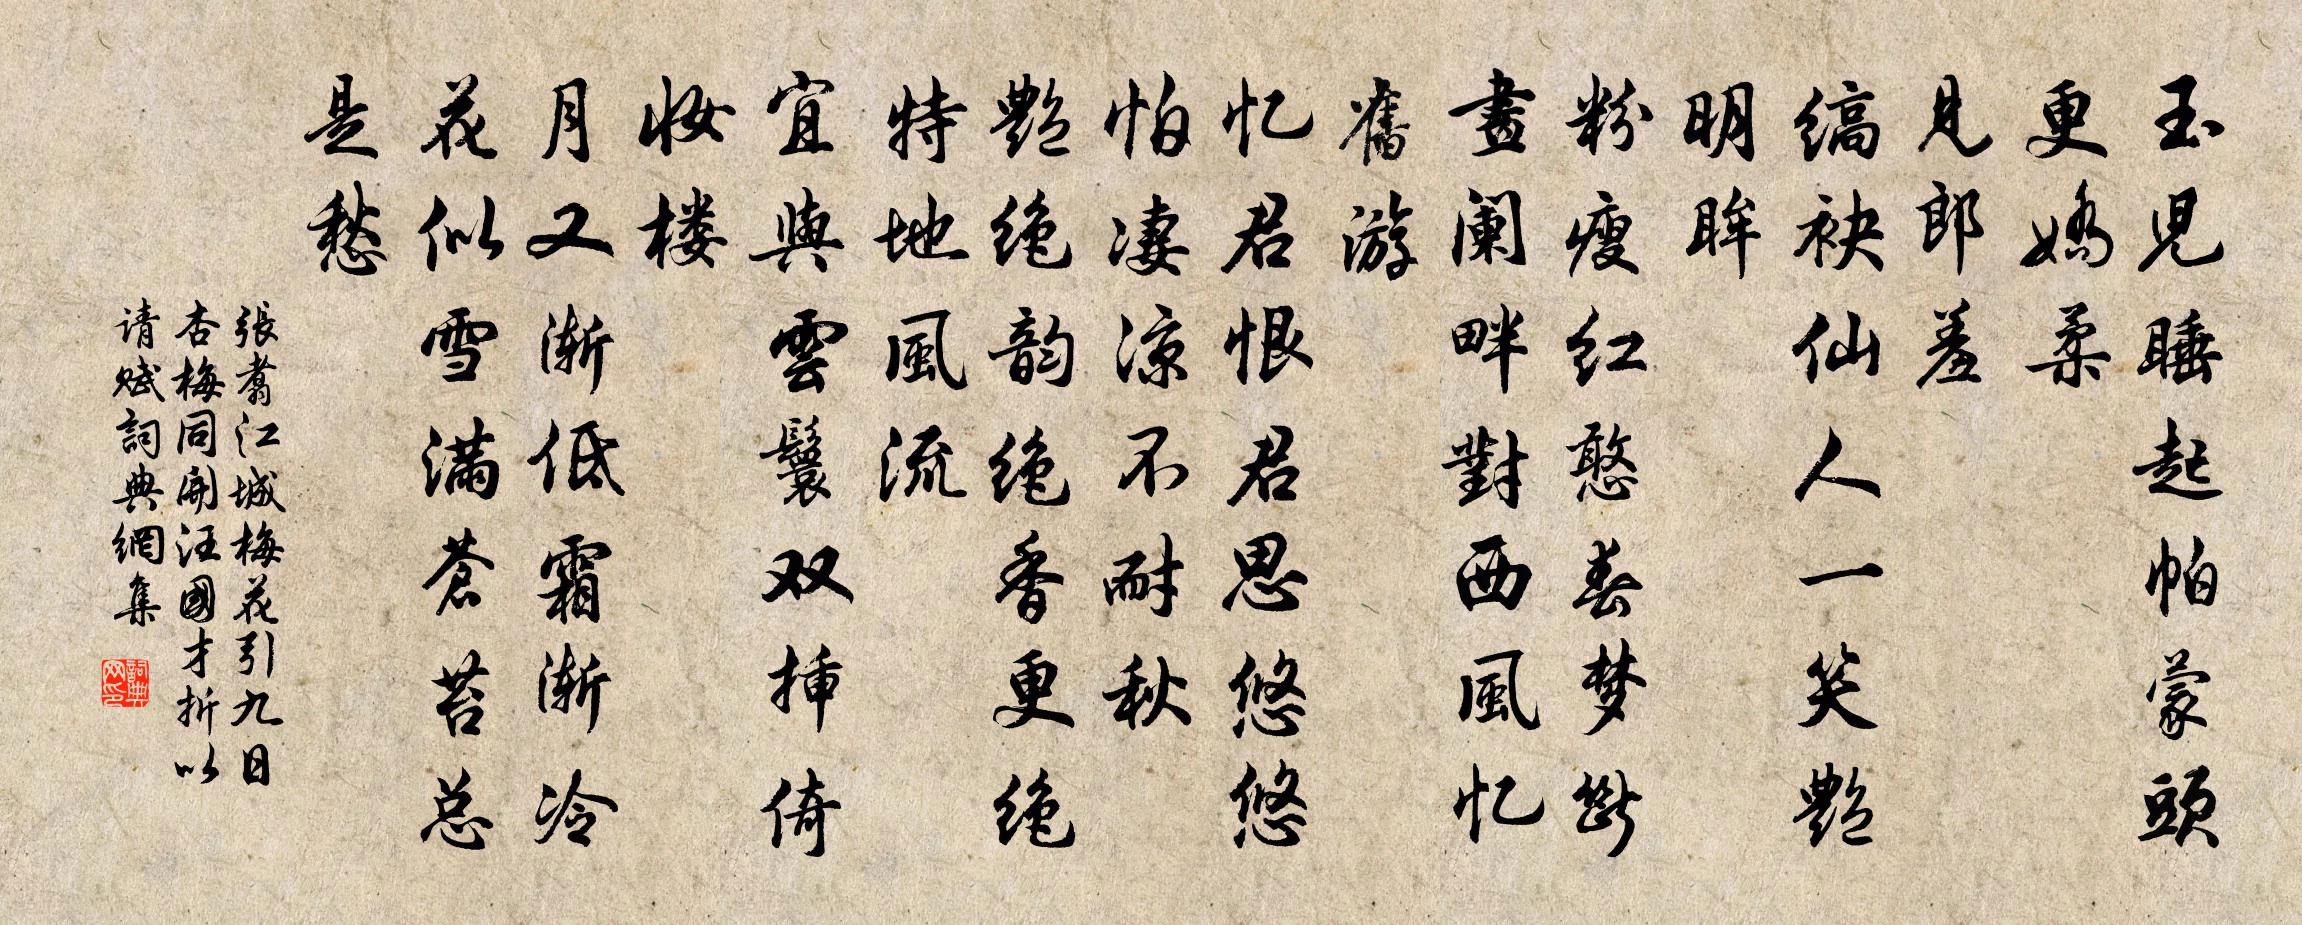 玉児睡起帕蒙頭
更嬌柔
見郎羞
缟袂仙人一笑艷
明眸
粉瘦红憨春梦斷
畫阑畔對西風忆
舊游
忆君恨君思悠悠
怕凄涼不耐秋
艷绝韵绝香更绝
特地風流
宜與雲鬟双挿倚
妆楼
月又渐低霜渐冷
花似雪满蒼苔总
是愁
張翥江城梅花引九日
杏梅同開汪國才折以
请赋詞典網集
詞典网印